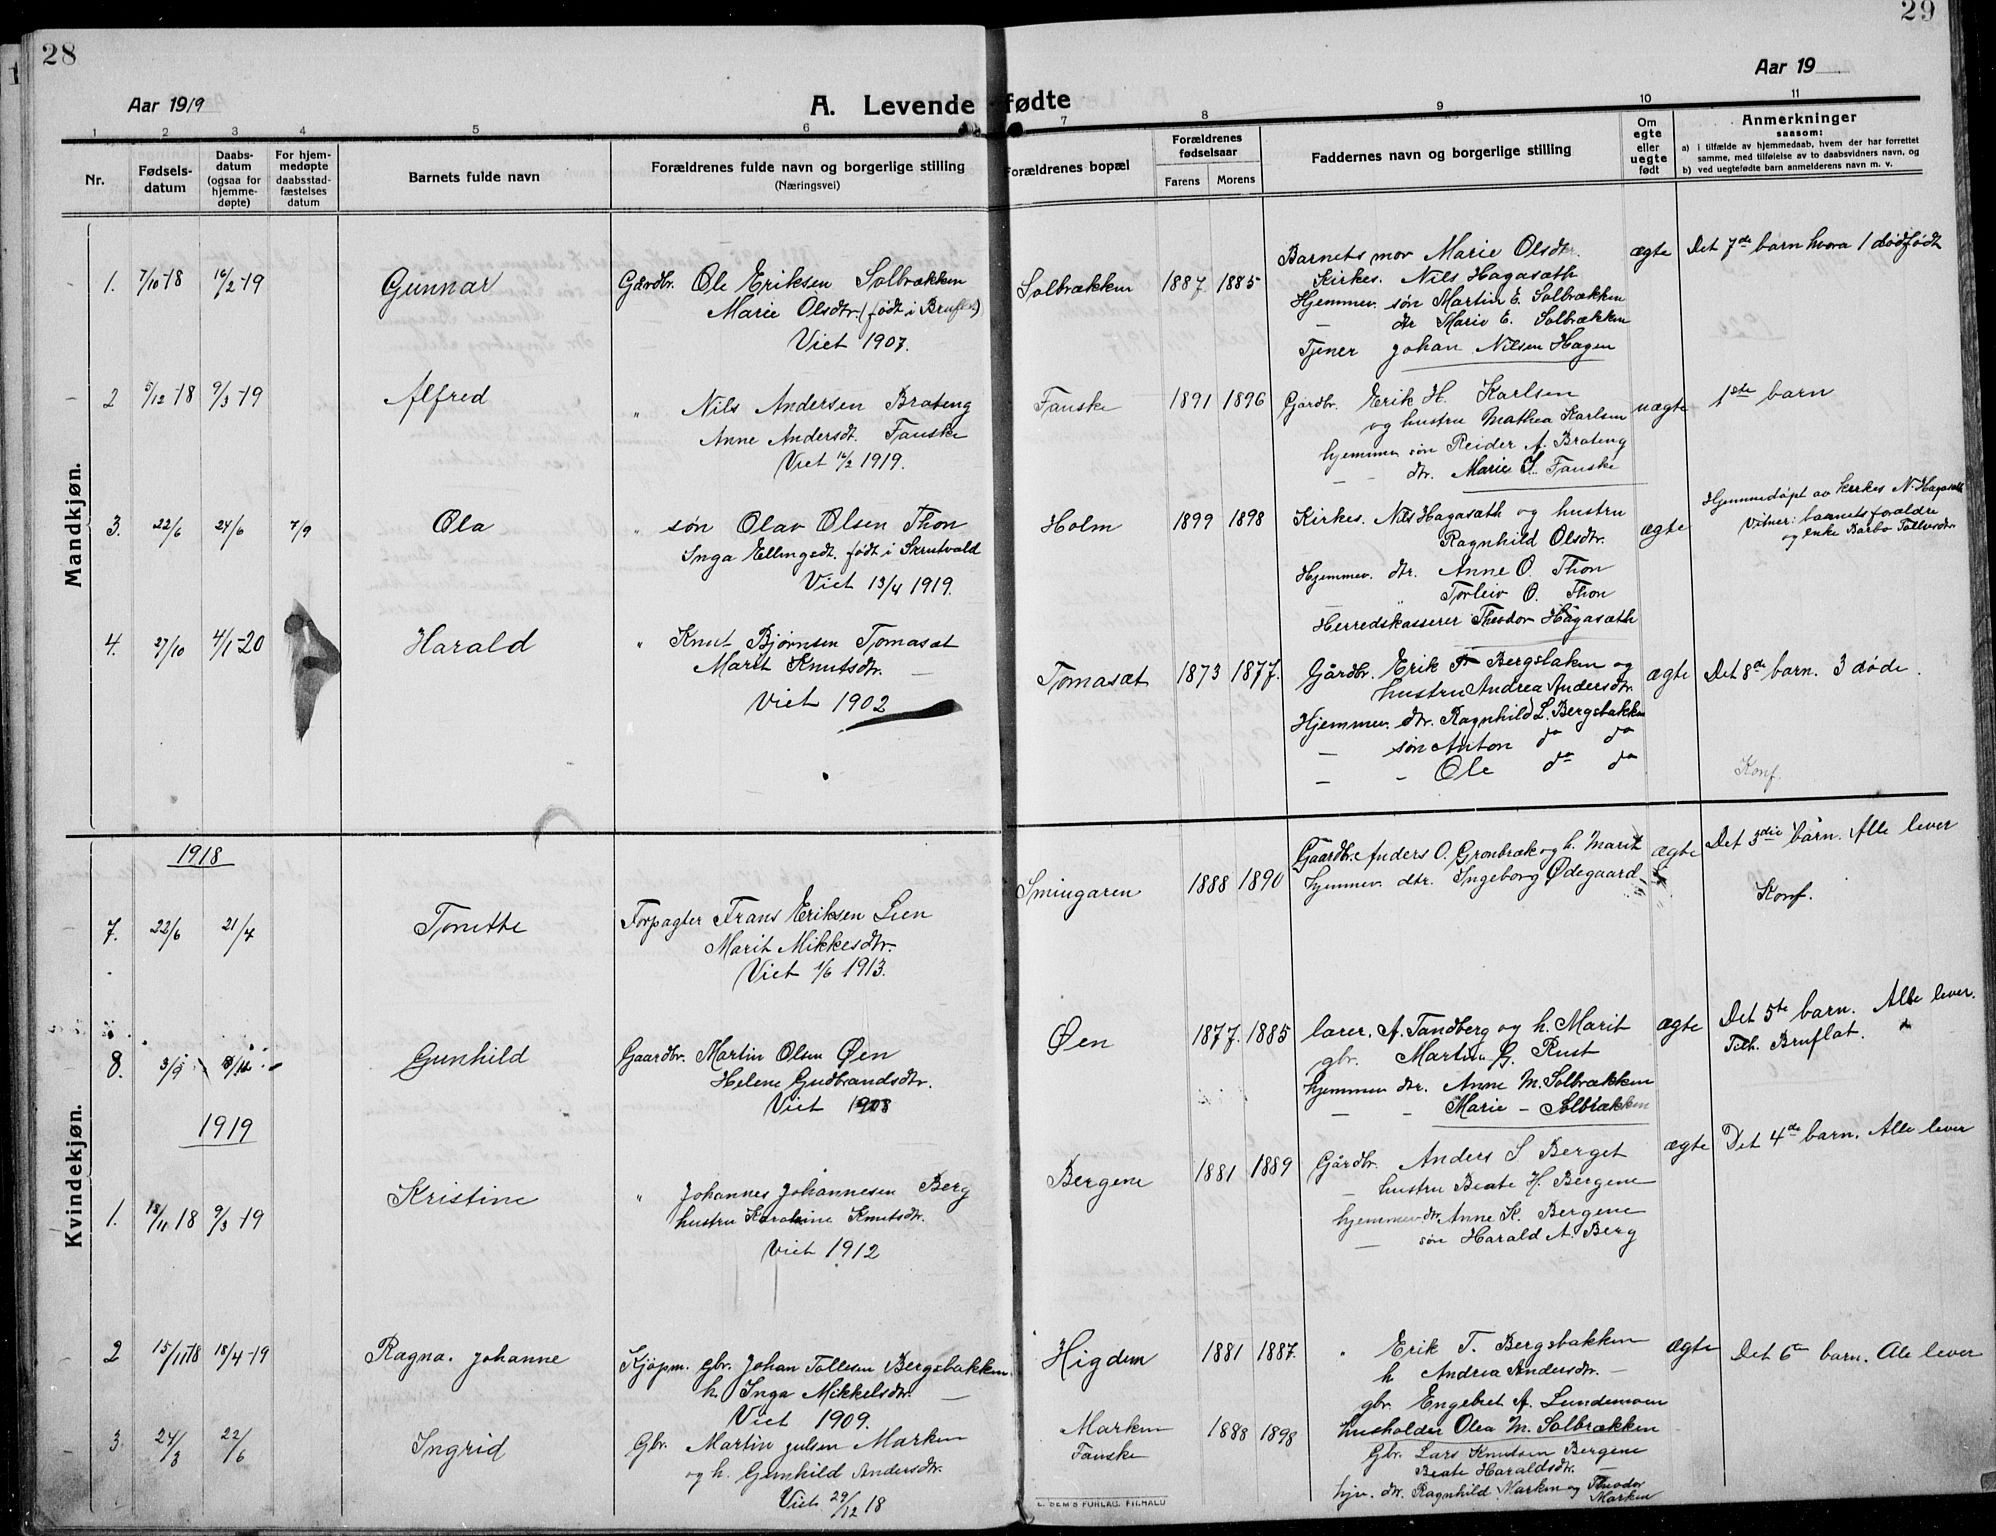 28
29
Aar 1919
A. Levende fødte
Aar 19
1 2 3 4 5 6 7 8 9 10 11
Nr.
Fødsels-
datum
Daabs-
datum
(ogsaa for
hjemme-
døpte)
For hjem-
medøpte
daabsstad-
fæstelses
datum
Barnets fulde navn
Forældrenes fulde navn og borgerlige stilling
(Næringsvei)
Forældrenes bopæl
Forældrenes
fødselsaar
Farens Morens
Faddernes navn og borgerlige stilling
Om
egte
eller
uegte
født
Anmerkninger
saasom:
a) i tilfælde av hjemmedaab, hvem der har forrettet
samme, med tilføielse av to daabsvidners navn, og
b) ved uegtefødte barn anmelderens navn m. v.
Mandkjøn.
1. 7/10-18 16/2-19 Gunnar
Gardbr. Ole Eriksen Solbrækken
Marie Olsdtr. (født i Bruflat)
Viet 1907.
Solbrækken 1887. 1885
Barnets mor Marie Olsdtr.
Kirkes. Nils Hagasæth
Hjemmev. søn Martin E. Solbrækken
— dtr Marie E. Solbrækken
Tjener Johan Nilsen Hagen
ægte
Det 7de barn hvora 1 dødfødt
2 5/12-18 9/3-19 Alfred
" Nils Andersen Brateng
Anne Andersdt. Fauske
Viet 16/2 1919.
Fauske 1891 1896
Gårdbr. Erik H. Karlsen
og hustru Mathea Karlsen
hjemmev søn Reider A. Brateng
— dtr. Marie S. Fauske
uægte
1ste barn
3. 22/6 24/6 7/9 Ola
" søn Olav Olsen Thon
Inga Ellingsdt. født i Skrutvold
Viet 13/4 1919.
Holm 1899 1898
Kirkes. Nils Hagasæth og hustru
Ragnhild Olsdtr.
Hjemmev. dtr. Anne O. Thon
— " Torleiv O. Thon
Herredskasserer Theodor Hagasæth
ægte
Hjemmedøpt av kirkes N. Hagasæth
Vitner: barnets forældre
og enke Barbo Tollevsdtr.
4. 27/10 4/1-20 Harald
" Knut Bjørnsen Tomasæt
Marit Knutsdtr. —
Viet 1902
Tomasæt 1873 1877.
Gårdbr. Erik Bergsbaken og
hustru Andrea Andersdtr.
Hjemmev. dtr. Ragnhild L. Bergsbakken
— søn Anton do do
— - Ole do do
ægte
Det 8de barn. 3 døde.
Konf.
Kvindekjøn.
1918
7. 22/6 21/4 Tonette
Forpagter Frans Eriksen Lien
Marit Mikkesdtr.
Viet 1/6 1913.
Smiugaren 1888 1890
Gaardbr. Anders O. Grønbræk og h. Marit
hjemmev. dtr. Ingeborg Ødegaard
ægte
Det 3die barn. Alle lever
Konf.
8. 3/9 8/12 Gunhild
Gaardbr. Martin Olsen Øen
Helene Gudbrandsdtr.
Viet 1908
Øen 1877. 1885
lærer. A. Tandberg og h. Marit
gbr. Martin G. Rust
hjemmev dtr. Anne M. Solbrækken
— - Marie — Solbrækken
ægte
Det 5te barn. Alle lever.
Tilh. Bruflat.
1919
1. 18/11 18 9/3-19 Kristine
" Johannes Johannesen Berg
hustru Karoline Knutsdtr.
Viet 1912
Bergene 1881 1889
Gårdbr. Anders S Berget
— hustru Beate H. Bergene
hjemmev dtr Anne K. Bergene
— søn Harald A. Berg
ægte
Det 4de barn. Alle lever
2 15/11 18 18/4-19 Ragna. Johanne
Kjøpm. gbr. Johan Tollesen Bergsbakken
h. Inga Mikkelsdtr. —
Viet 1909.
Høgdem 1881 1887.
" Erik T. Bergsbakken
h Andrea Andersdtr. —
gbr. Engebret A. Lundemoen
husholder Olea M. Solbrækken
ægte
Det 6te barn. Ale lever
3 24/3 22/6 Ingrid
Gbr. Martin Julsen Marken
og h. Gunhild Andersdtr.
Viet 29/12 18
Marken
Fauske 1888 1898
Gbr. Lars Knutsen Bergene
Beate Haraldsdtr. —
hjv. dtr. Ragnhild Marken og Theodor
Marken
E. SEM'S FORLAG, FR.HALD